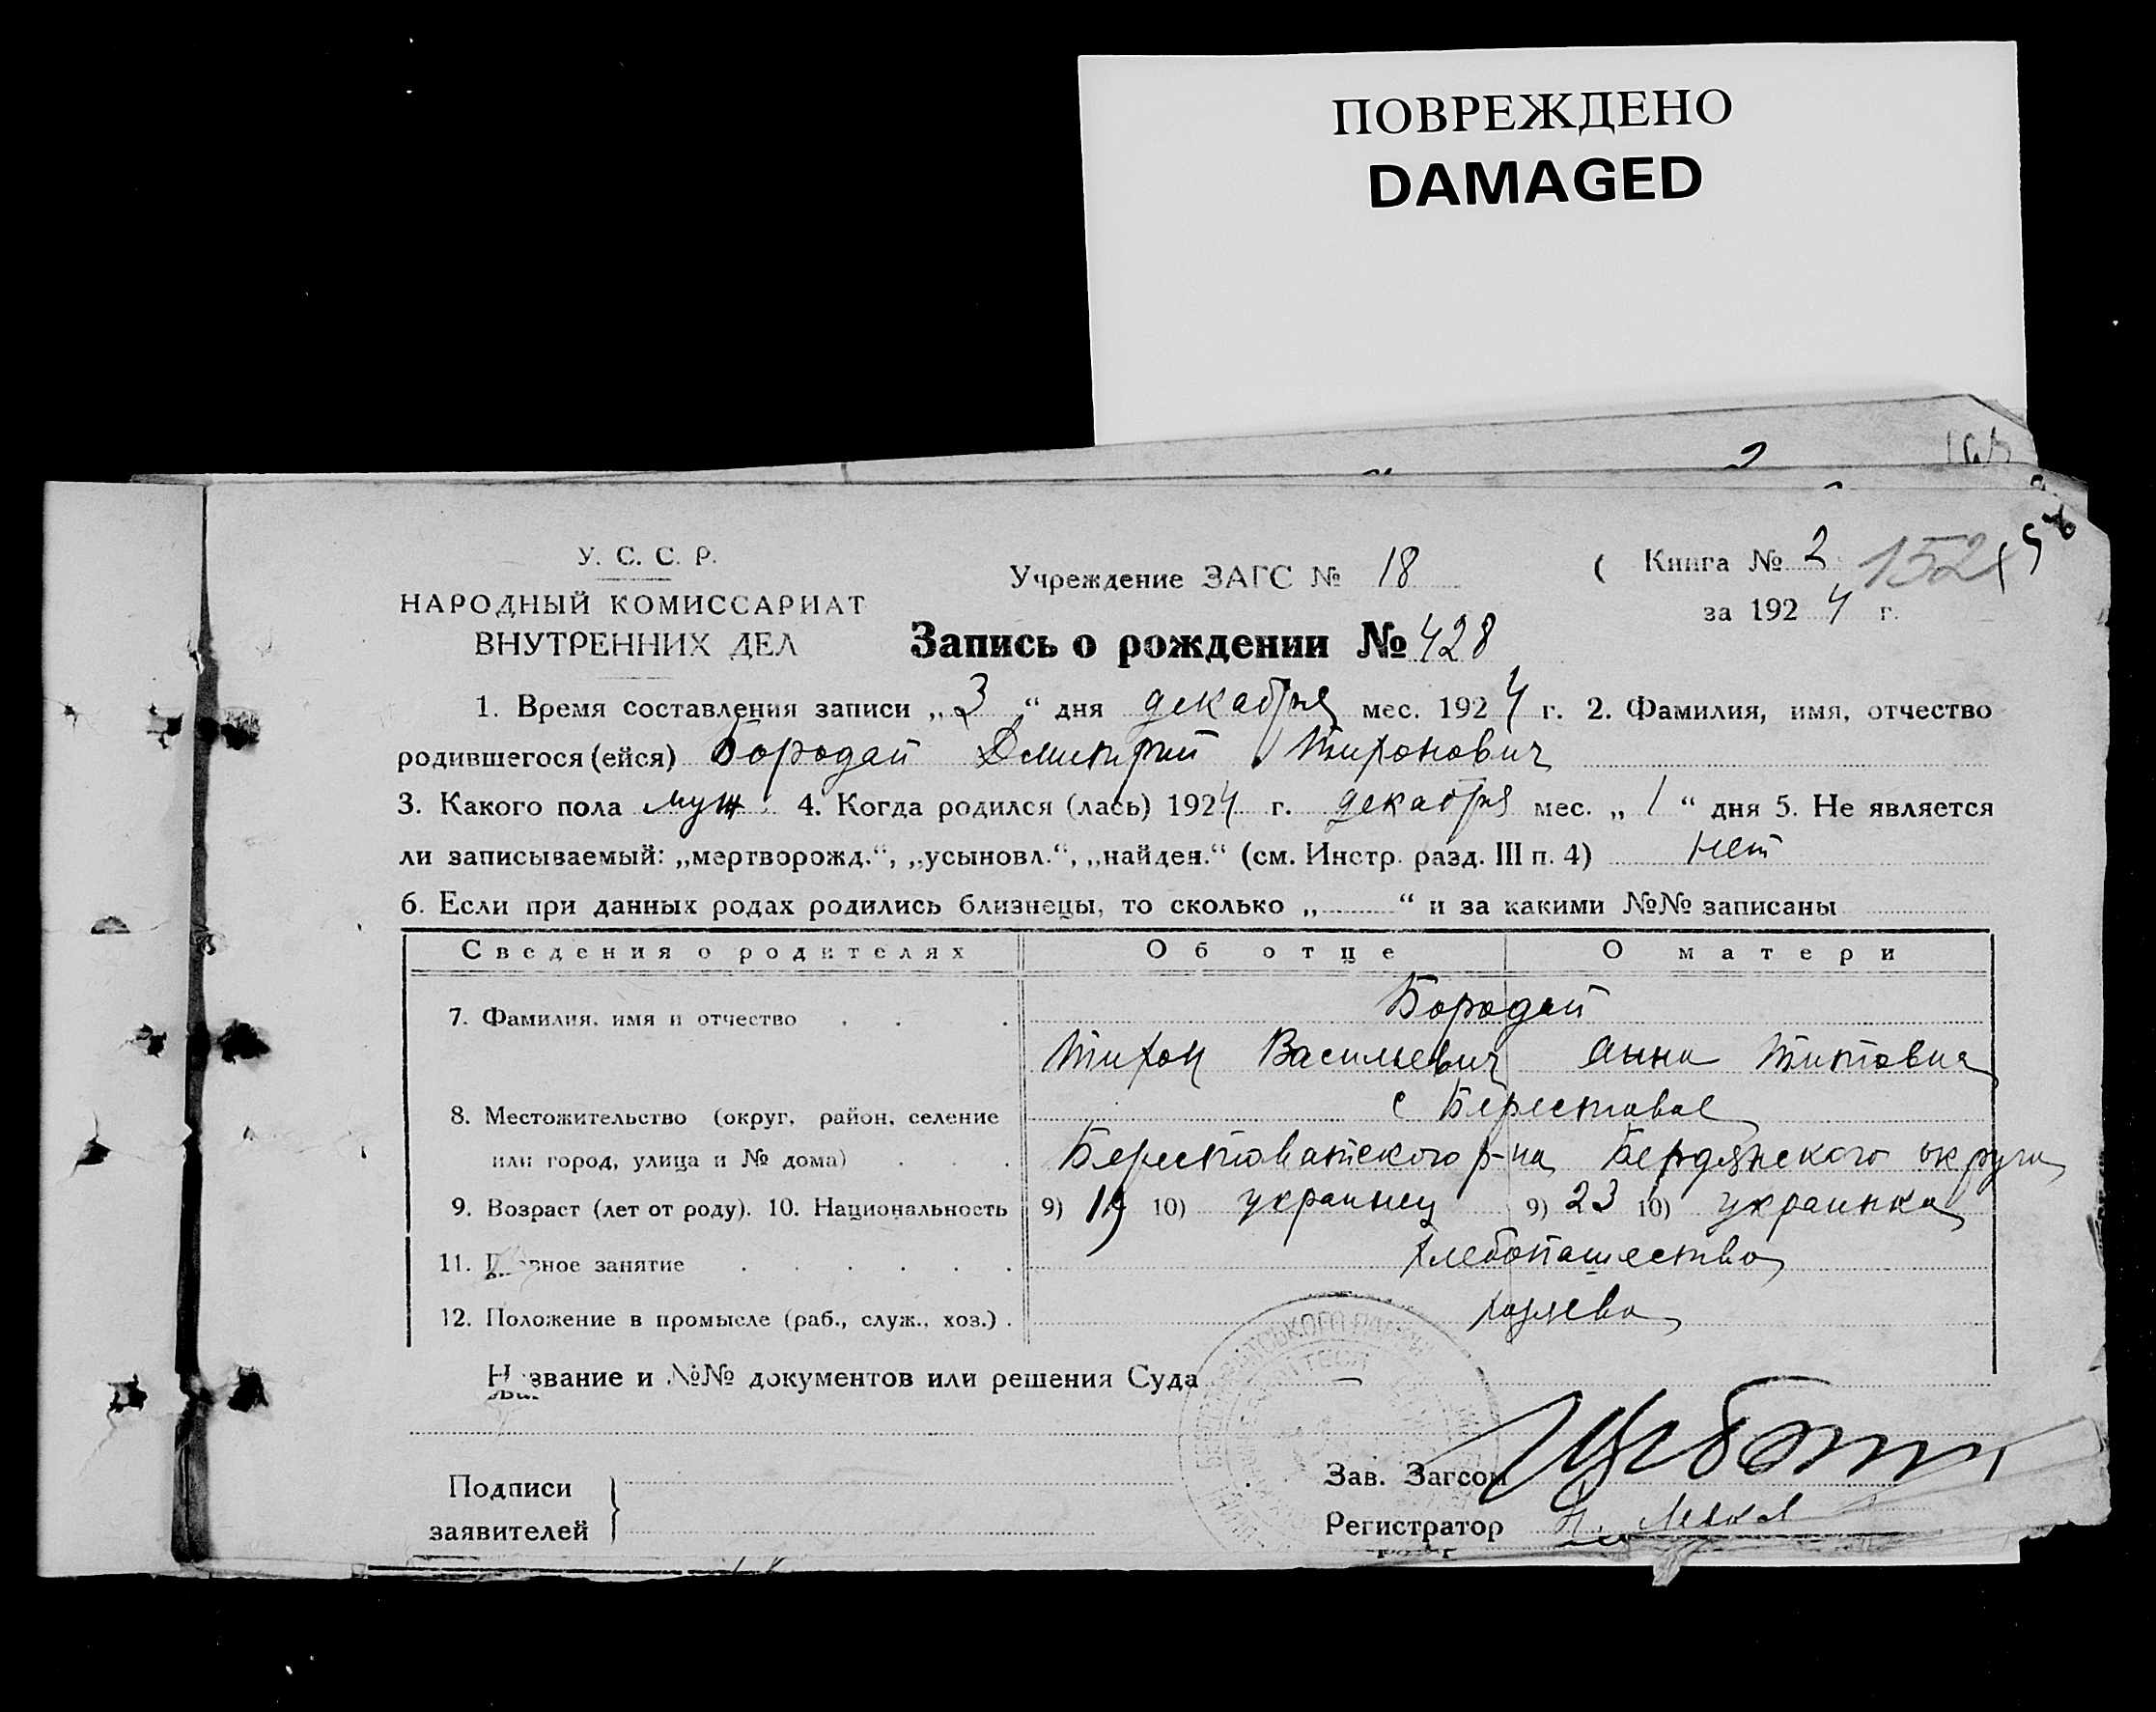 ПОВРЕЖДЕНО
DAMAGED
У. С. С. Р.
НАРОДНЫЙ КОМИССАРИАТ
ВНУТРЕННИХ ДЕЛ
Учреждение ЗАГС № 18
Книга № 2 152
за 1924 г.
Запись о рождении № 428
1. Время составления записи „3“ дня декабря мес. 1924 г. 2. Фамилия, имя, отчество
родившегося (ейся) Бородай Дмитрий Тихонович
3. Какого пола муж 4. Когда родился (лась) 1924 г. декабря мес. „1“ дня 5. Не является
ли записываемый: „мертворожд.“, „усыновл.“, „найден.“ (см. Инстр. разд. III п. 4) нет
6. Если при данных родах родились близнецы, то сколько „ “ и за какими №№ записаны
Сведения о родителях Об отце О матери
7. Фамилия, имя и отчество Бородай
Тихон Васильевич Анна Титовна
8. Местожительство (округ, район, селение с Берестовое
или город, улица и № дома) Берестоватского р-на Бердянского округа
9. Возраст (лет от роду). 10. Национальность 9) 19 10) украинец 9) 23 10) украинка
11. Главное занятие хлебопашество
12. Положение в промысле (раб., служ., хоз.) хозяева
Название и №№ документов или решения Суда —
Подписи
заявителей
Зав. Загсом
Регистратор